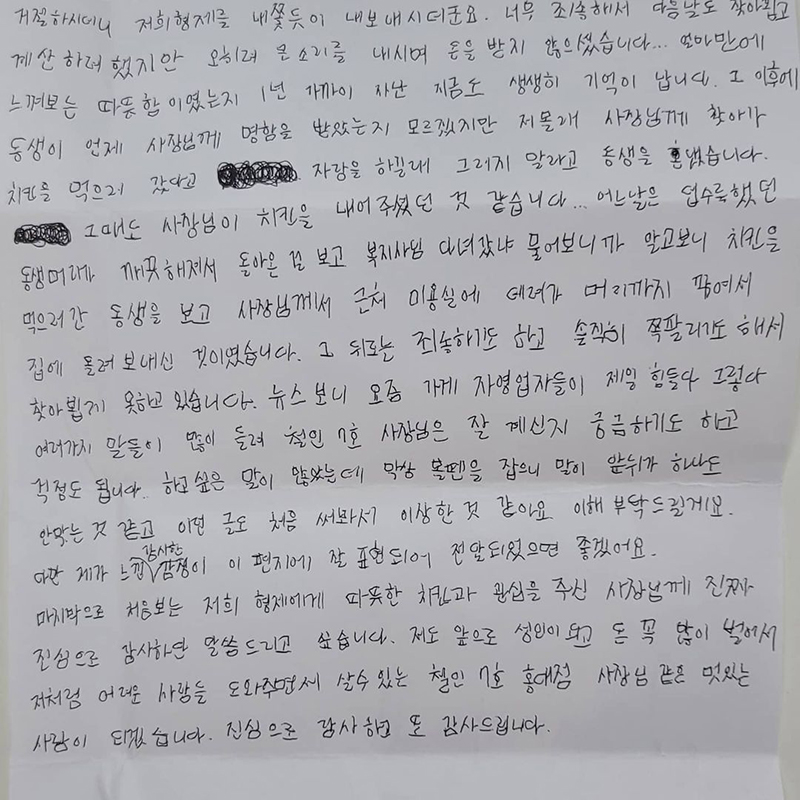 거절하시더니 저희형제를 내쫓듯이 내보내시더군요. 너무 죄송해서 다음날도 찾아뵙고
계산하려 했지만 오히려 큰소리를 내시며 돈을 받지 않으셨습니다... 얼마만에
느껴보는 따뜻함이였는지 1년 가까이 지난 지금도 생생히 기억이 납니다. 그 이후에
동생이 언제 사장님께 명함을 받았는지 모르겠지만 저몰래 사장님께 찾아가
치킨을 먹으러 갔다고 자랑을 하길래 그러지 말라고 동생을 혼냈습니다.
그때도 사장님이 치킨을 내어주셨던 것 같습니다... 어느날은 덥수룩했던
동생머리가 깨끗해져서 돌아온 걸 보고 복지사님 다녀갔냐 물어보니까 알고보니 치킨을
먹으러간 동생을 보고 사장님께서 근처 미용실에 데려가 머리까지 깎여서
집에 돌려 보내신 것이였습니다. 그 뒤로는 죄송하기도 하고 솔직히 쪽팔리기도 해서
찾아뵙게 못하고 있습니다. 뉴스보니 요즘 가게 자영업자들이 제일 힘들다 그렇다
여러가지 말들이 많이 들려 철인 7호 사장님은 잘 계신지 궁금하기도 하고
걱정도 됩니다.. 하고싶은 말이 많았는데 막상 볼펜을 잡으니 말이 앞뒤가 하나도
안맞는 것 같고 이런 글도 처음 써봐서 이상한 것 같아요 이해 부탁드릴게요.
다만 제가 느낀 감사한 감정이 이 편지에 잘 표현되어 전달되었으면 좋겠어요.
마지막으로 처음보는 저희 형제에게 따뜻한 치킨과 관심을 주신 사장님께 진짜
진심으로 감사하단 말씀 드리고 싶습니다. 저도 앞으로 성인이 되고 돈 꼭 많이 벌어서
저처럼 어려운 사람들 도와주면서 살수있는 철인 7호 홍대점 사장님 같은 멋있는
사람이 되겠습니다. 진심으로 감사하고 또 감사드립니다.